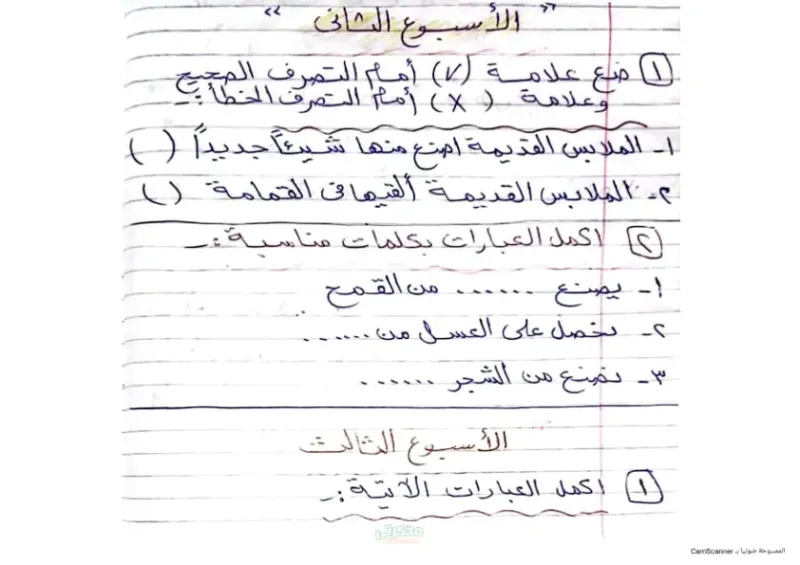 " الأسبوع الثانى "
١ ضع علامة (√) أمام التصرف الصحيح
وعلامة (X) أمام التصرف الخطأ :-
١- الملابس القديمة اصنع منها شيئاً جديداً ( )
٢- الملابس القديمة ألقيها فى القمامة ( )
٢ اكمل العبارات بكلمات مناسبة :-
١- يصنع ...... من القمح
٢- نحصل على العسل من ......
٣- نصنع من الشجر ......
الأسبوع الثالث
١ اكمل العبارات الآتية :-
مذكرتى
الممسوحة ضوئيا بـ CamScanner